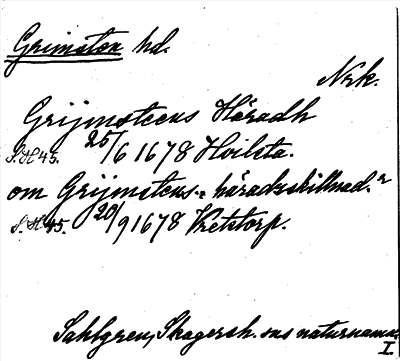 Grimsten hd.
Nrk.
Grijmsteens Häradh
S.H 45. 25/6 1678 Hvilsta.
om Grijmstens= häradzskillnad.r
S.H 45. 20/9 1678 Vretstorp.
Sahlgren, Skagersh. sns naturnamn.
I.